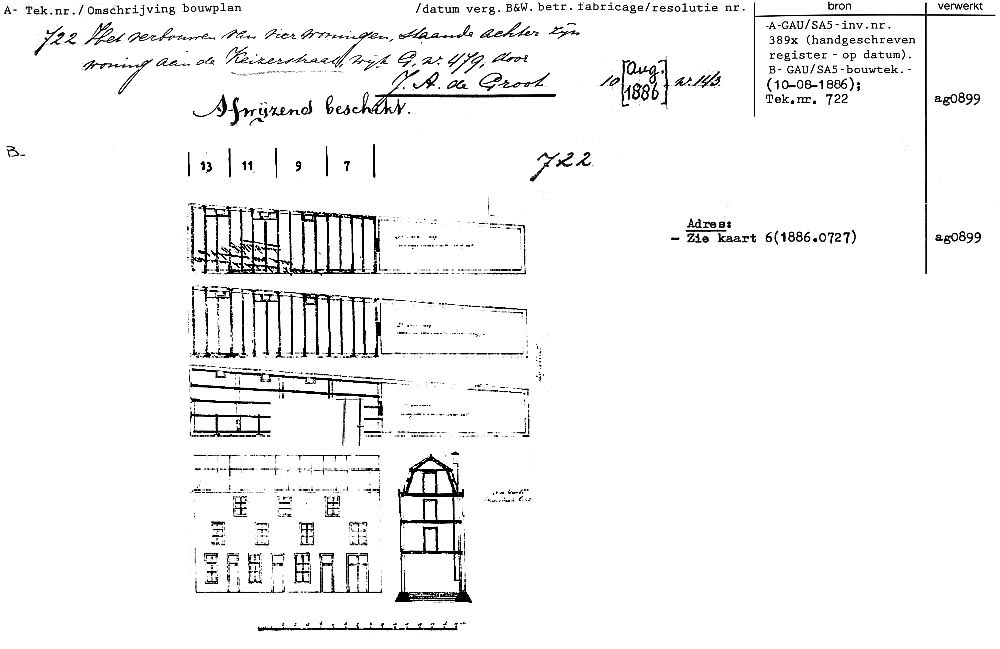 A- Tek.nr./ Omschrijving bouwplan /datum verg. B&W. betr. fabricage/resolutie nr. bron verwerkt
722 Het verbouwen van vier woningen, staande achter zijn
woning aan de Keizerstraat, wijk G, no. 479, door
J. A. de Groot
10 [Aug. 1886] no 143
Afwijzend beschikt.
-A-GAU/SA5-inv.nr.
389x (handgeschreven
register - op datum).
B- GAU/SA5-bouwtek.-
(10-08-1886);
Tek.nr. 722
ag0899
B-
13 11 9 7
722
Adres:
- Zie kaart 6(1886.0727)
ag0899